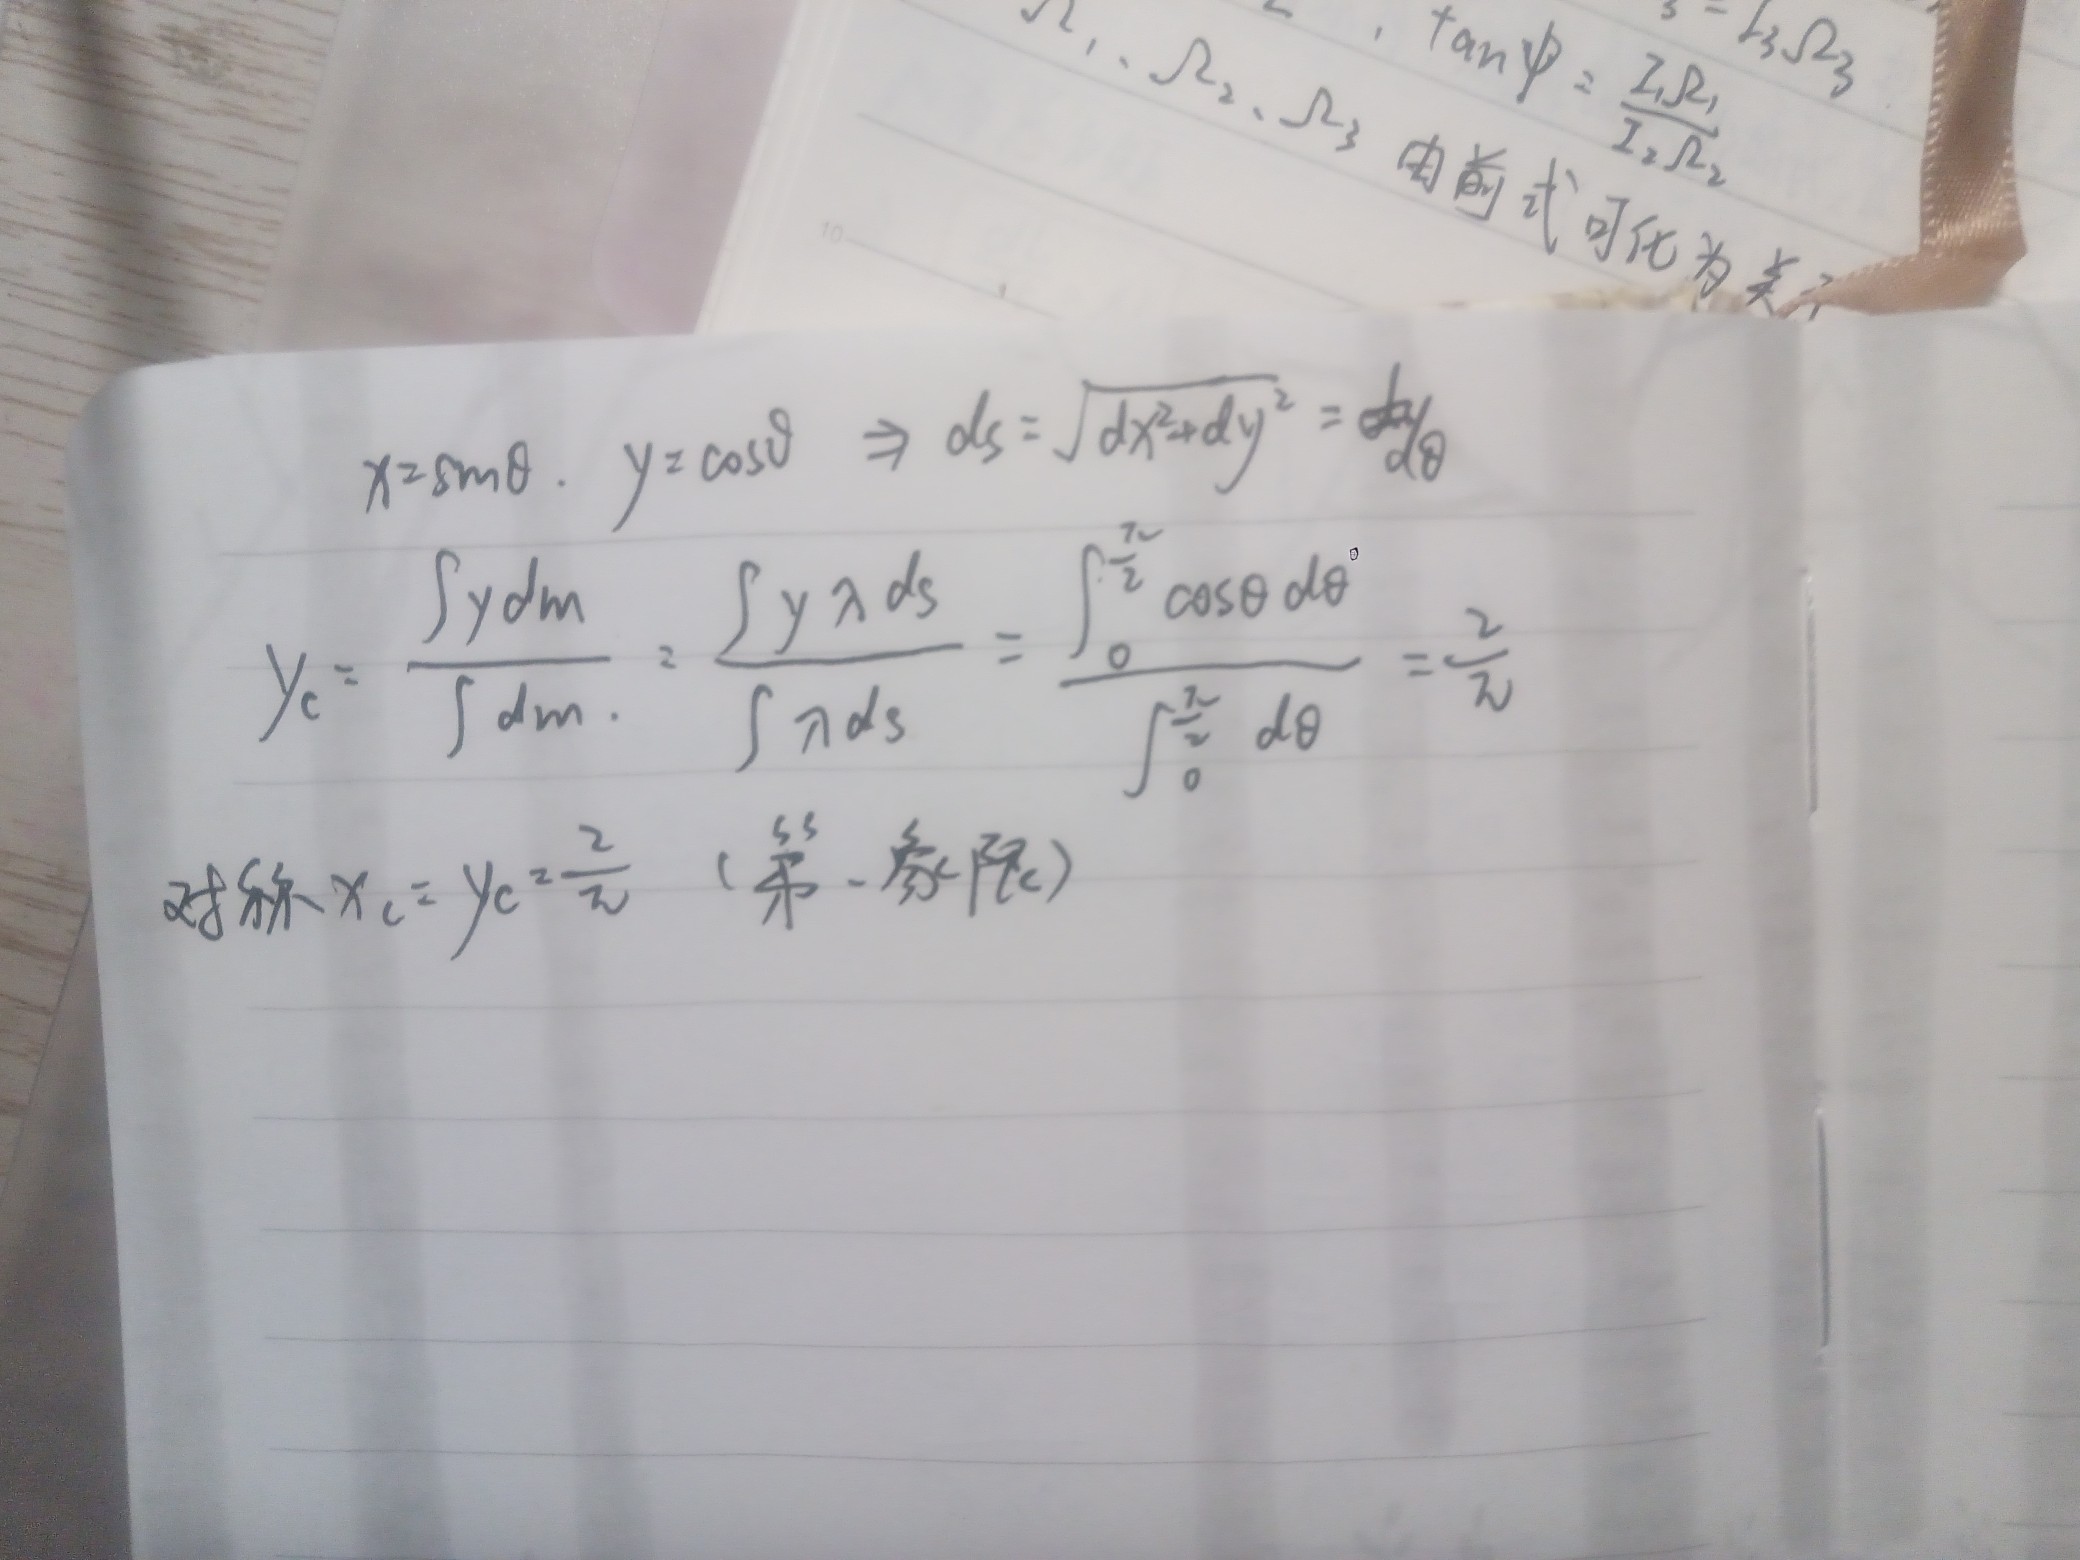 3 = I₃Ω₃
, tanψ = I₁Ω₁/I₂Ω₂
Ω₁、Ω₂、Ω₃ 由前式可化为关于
10
x=sinθ. y=cosθ ⇒ ds=√(dx²+dy²) = dθ
y_c = ∫ydm/∫dm. = ∫yλds/∫λds = ∫₀^(π/2) cosθdθ / ∫₀^(π/2) dθ = 2/π
对称 x_c = y_c = 2/π (第一象限)